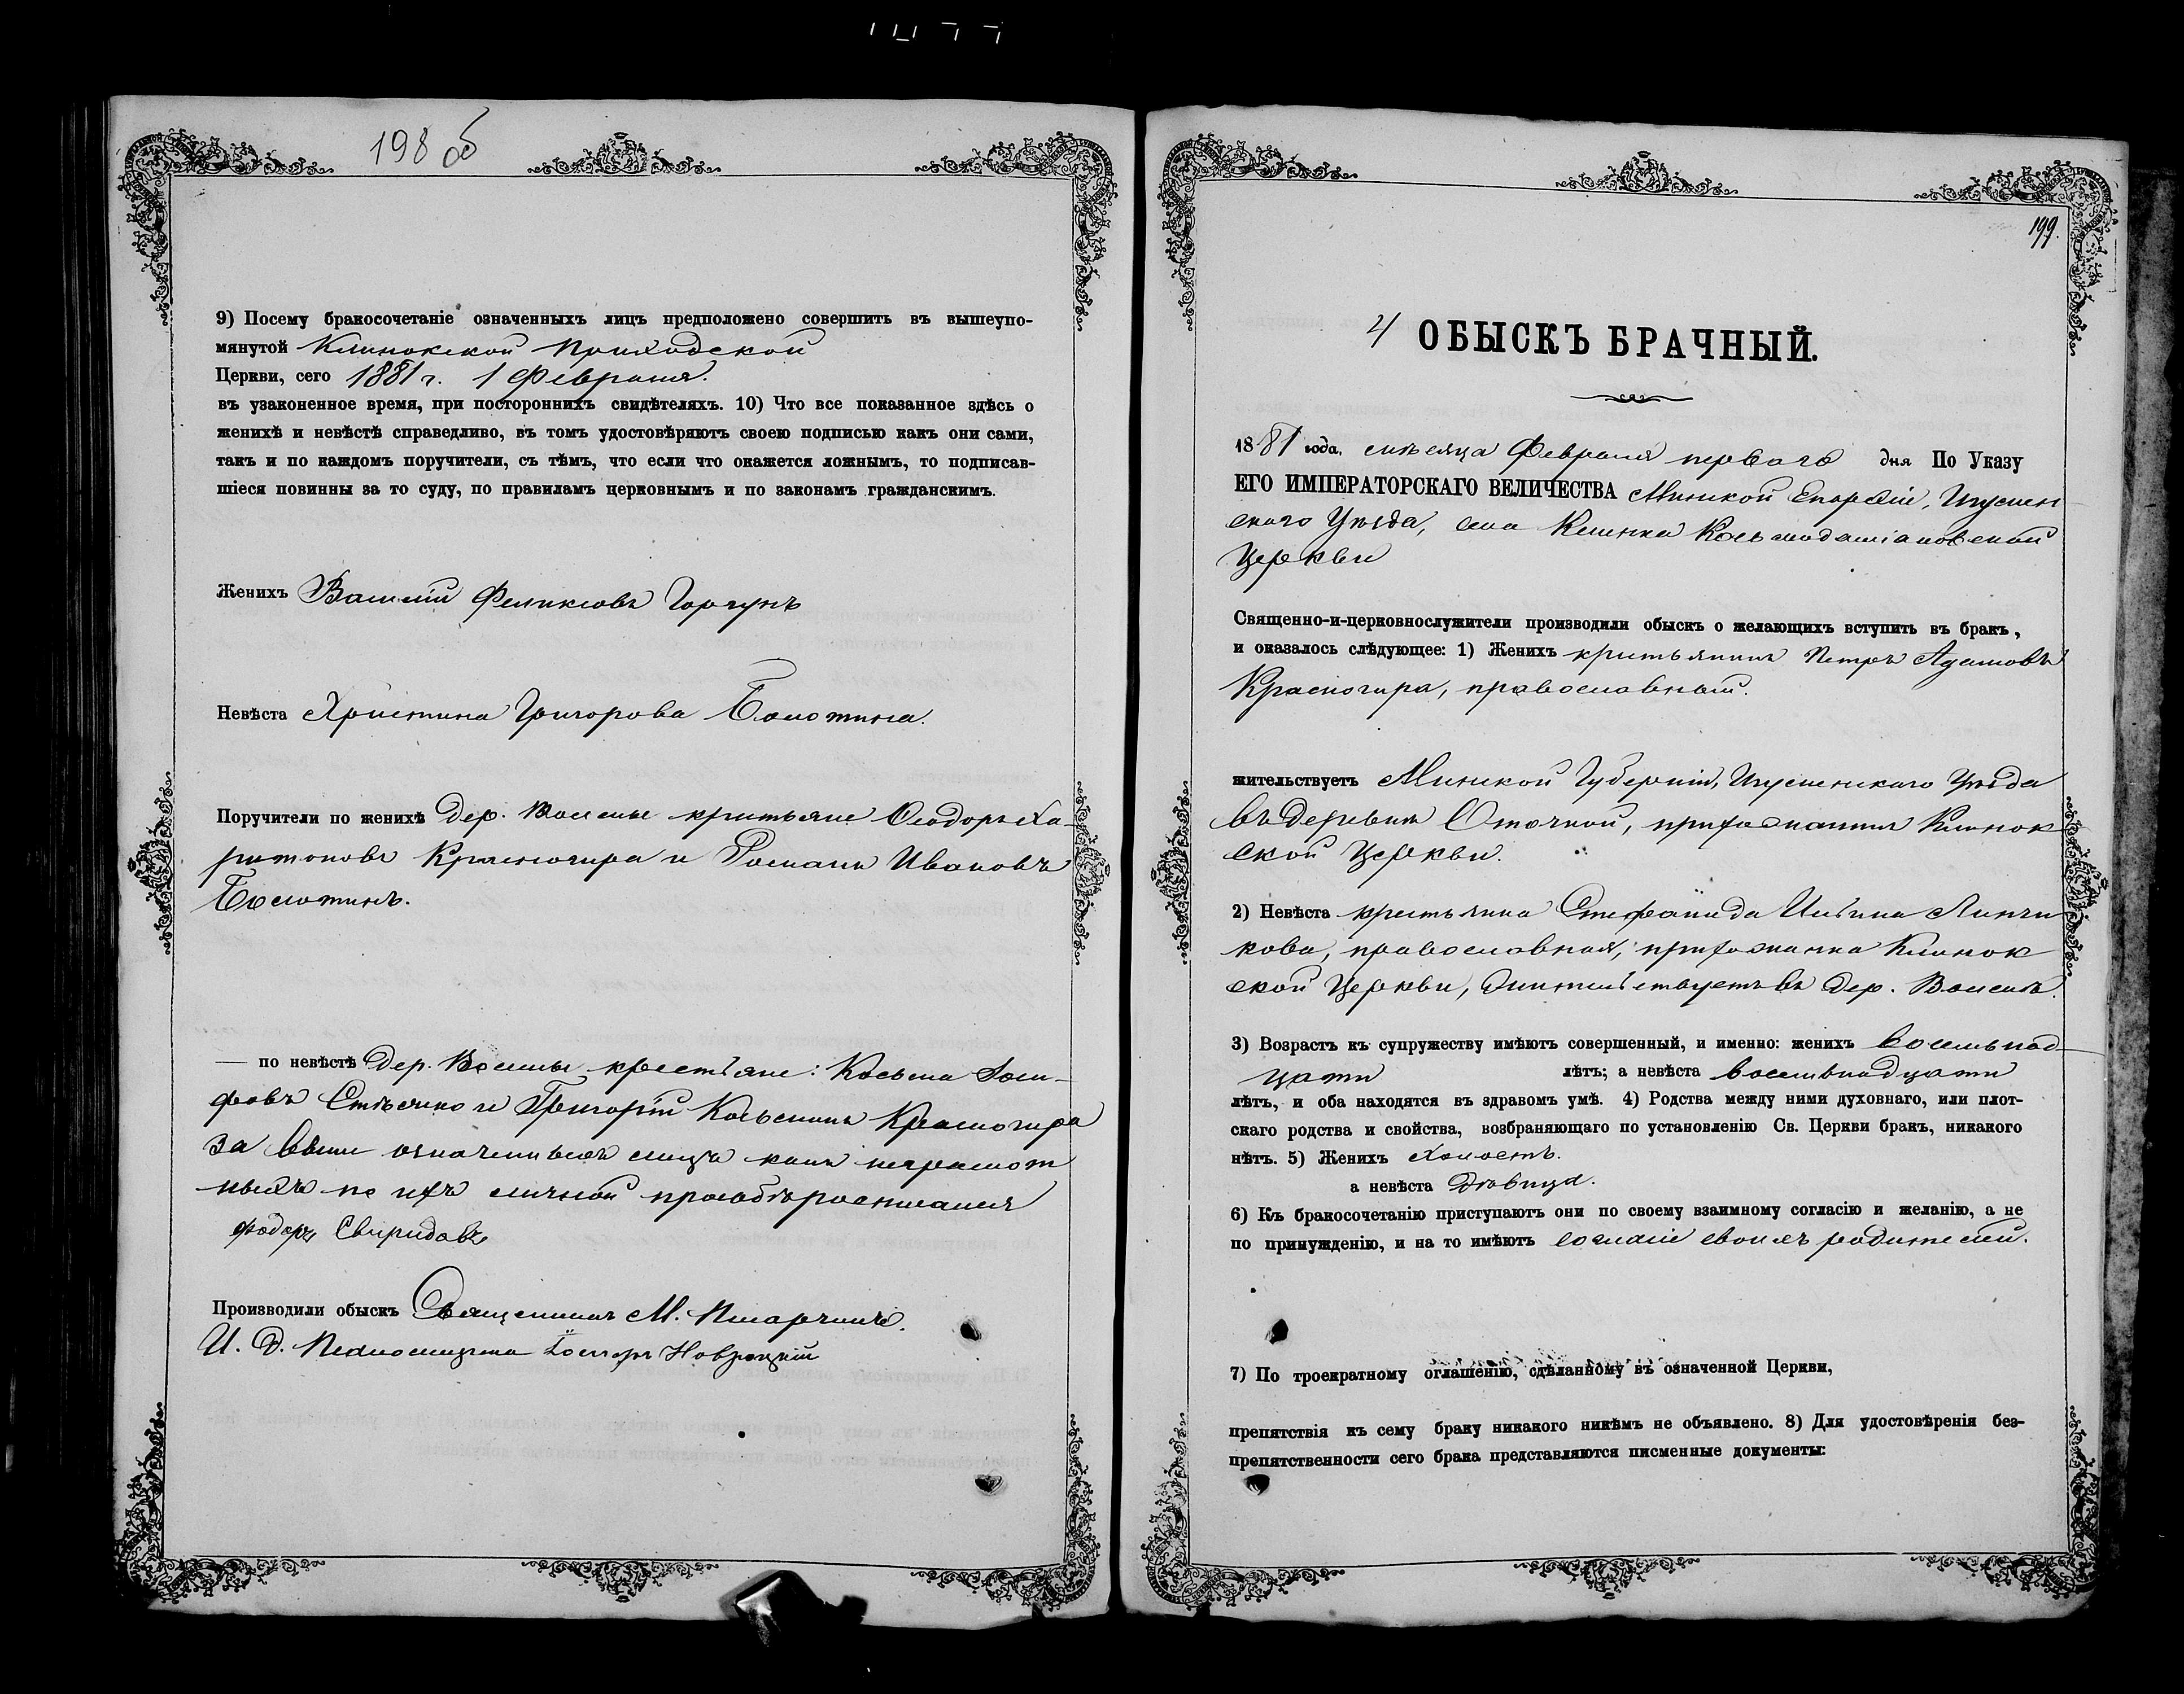 198 об
9) Посему бракосочетаніе означенныхъ лицъ предположено совершить въ вышеупо-
мянутой Клинокской Приходской
Церкви, сего 1881 г. 1 Февраля.
въ узаконенное время, при постороннихъ свидѣтеляхъ. 10) Что все показанное здѣсь о
женихѣ и невѣстѣ справедливо, въ томъ удостовѣряютъ своею подписью какъ они сами,
такъ и по каждомъ поручители, съ тѣмъ, что если что окажется ложнымъ, то подписав-
шіеся повинны за то суду, по правиламъ церковнымъ и по законамъ гражданскимъ.
Женихъ Василій Феликсовъ Горгунъ
Невѣста Христина Григорова Болотина.
Поручители по женихѣ дер. крестьяне Ѳеодоръ Ха-
ритоновъ Красногира и Романъ Ивановъ
Болотинъ.
— по невѣстѣ дер. крестьяне: Косьма Іоси-
фовъ и Григорій Косьминъ Красногира
за выше означенныхъ лицъ какъ неграмот
ныхъ по ихъ личной прозьбѣ росписался
Фадоръ Свиридовъ
Производили обыскъ Священникъ М.
И. Д. Псаломщика Новицкій
199.
4 ОБЫСКЪ БРАЧНЫЙ.
1881 года, мѣсяца Февраля перваго дня По Указу
ЕГО ИМПЕРАТОРСКАГО ВЕЛИЧЕСТВА Минской Епархіи, Игумен-
скаго Уѣзда, села Клинка Косьмодаміановской
Церкви
Священно-и-церковнослужители производили обыскъ о желающихъ вступить въ бракъ,
и оказалось слѣдующее: 1) Женихъ крестьянинъ Петръ Адамовъ
Красногира, православный.
жительствуетъ Минской Губерніи, Игуменскаго Уѣзда
въ деревнѣ Оточкой, прихожанинъ Клинок
ской Церкви.
2) Невѣста крестьянка Стефанида Ильина Линчи
кова, православная, прихожанка Клинок
ской Церкви, жительствуетъ въ дер.
3) Возрастъ къ супружеству имѣютъ совершенный, и именно: женихъ восемьнад-
цати лѣтъ; а невѣста восемьнадцати
лѣтъ, и оба находятся въ здравомъ умѣ. 4) Родства между ними духовнаго, или плот-
скаго родства и свойства, возбраняющаго по установленію Св. Церкви бракъ, никакого
нѣтъ. 5) Женихъ холостъ.
а невѣста дѣвица.
6) Къ бракосочетанію приступаютъ они по своему взаимному согласію и желанію, а не
по принужденію, и на то имѣютъ согласіе своихъ родителей.
7) По троекратному оглашенію, сдѣланному въ означенной Церкви,
препятствія къ сему браку никакого никѣмъ не объявлено. 8) Для удостовѣренія без-
препятственности сего брака представляются писменные документы: